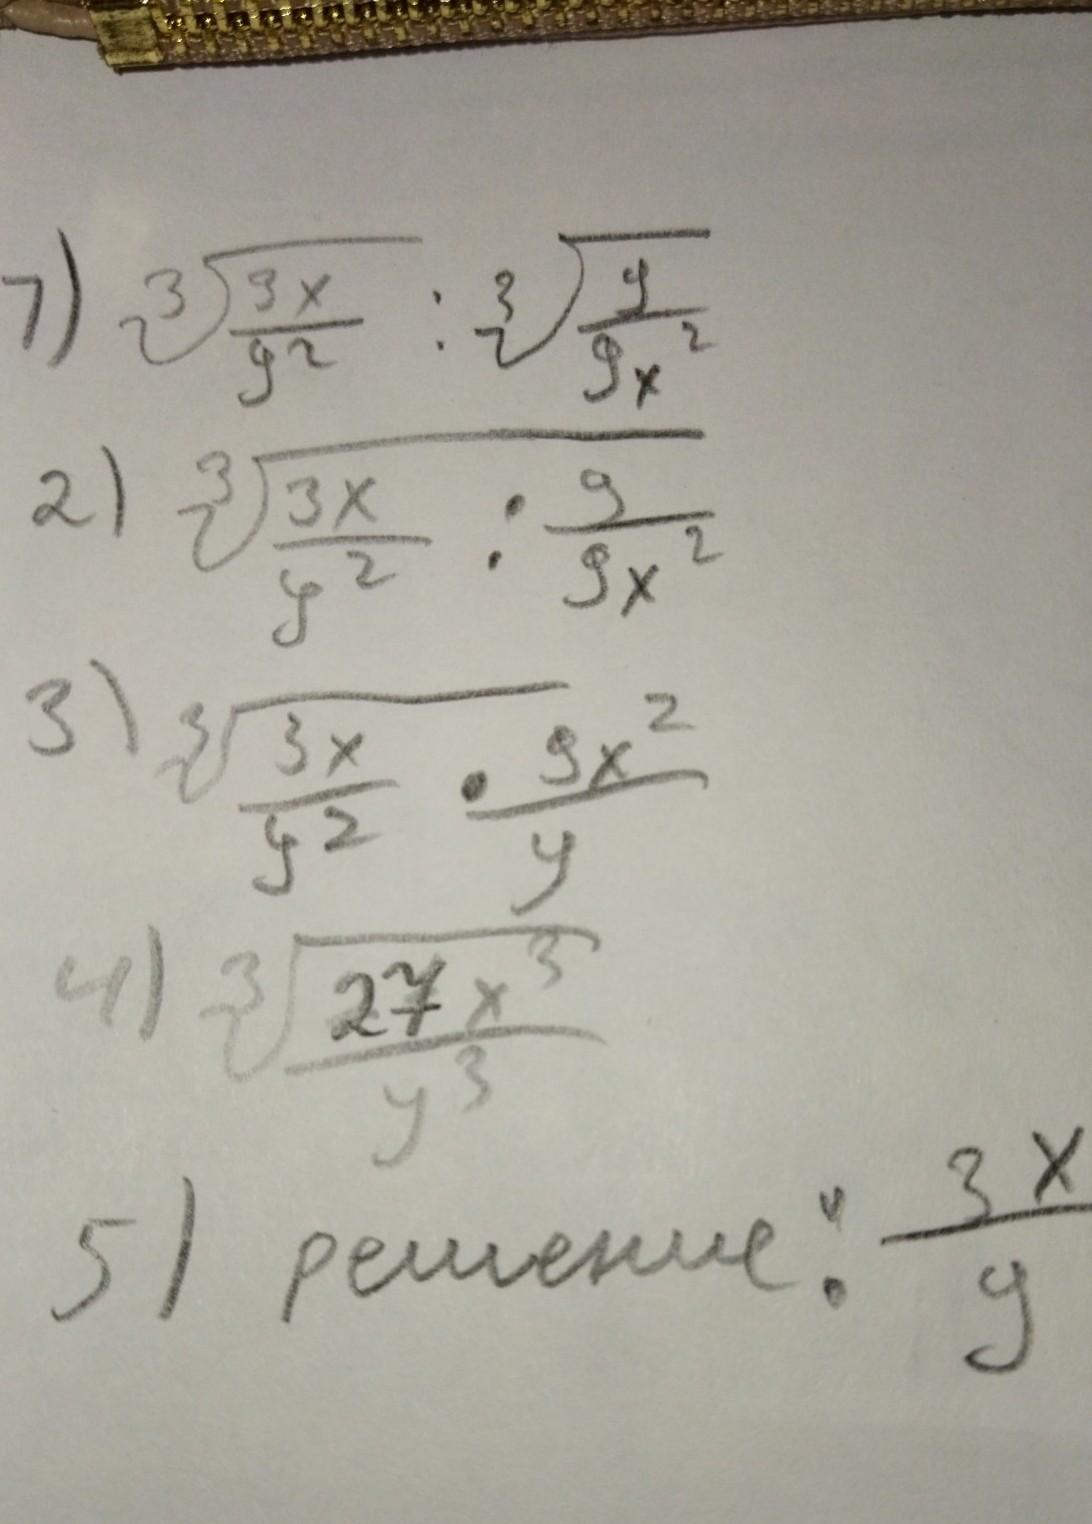 1) ∛(3x/y²) : ∛(y/9x²)
2) ∛(3x/y² : y/9x²)
3) ∛(3x/y² · 9x²/y)
4) ∛(27x³/y³)
5) решение: 3x/y